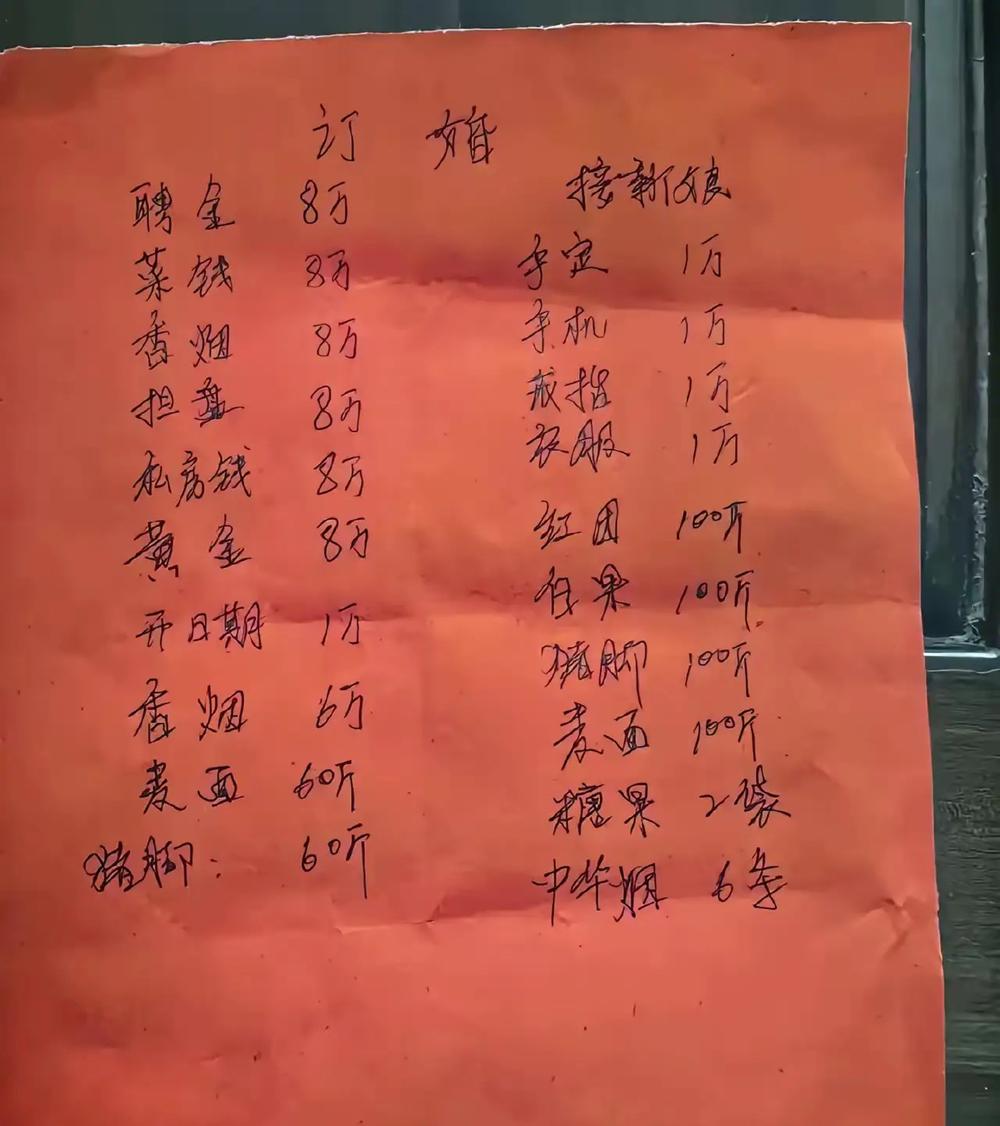 订 婚
聘金 8万
菜钱 8万
香烟 8万
担盘 8万
私房钱 8万
黄金 8万
开日期 1万
香烟 6万
麦面 60斤
猪脚: 60斤
接新娘
手定 1万
手机 1万
戒指 1万
衣服 1万
红团 100斤
果 100斤
猪脚 100斤
麦面 100斤
糖果 2袋
中华烟 6条